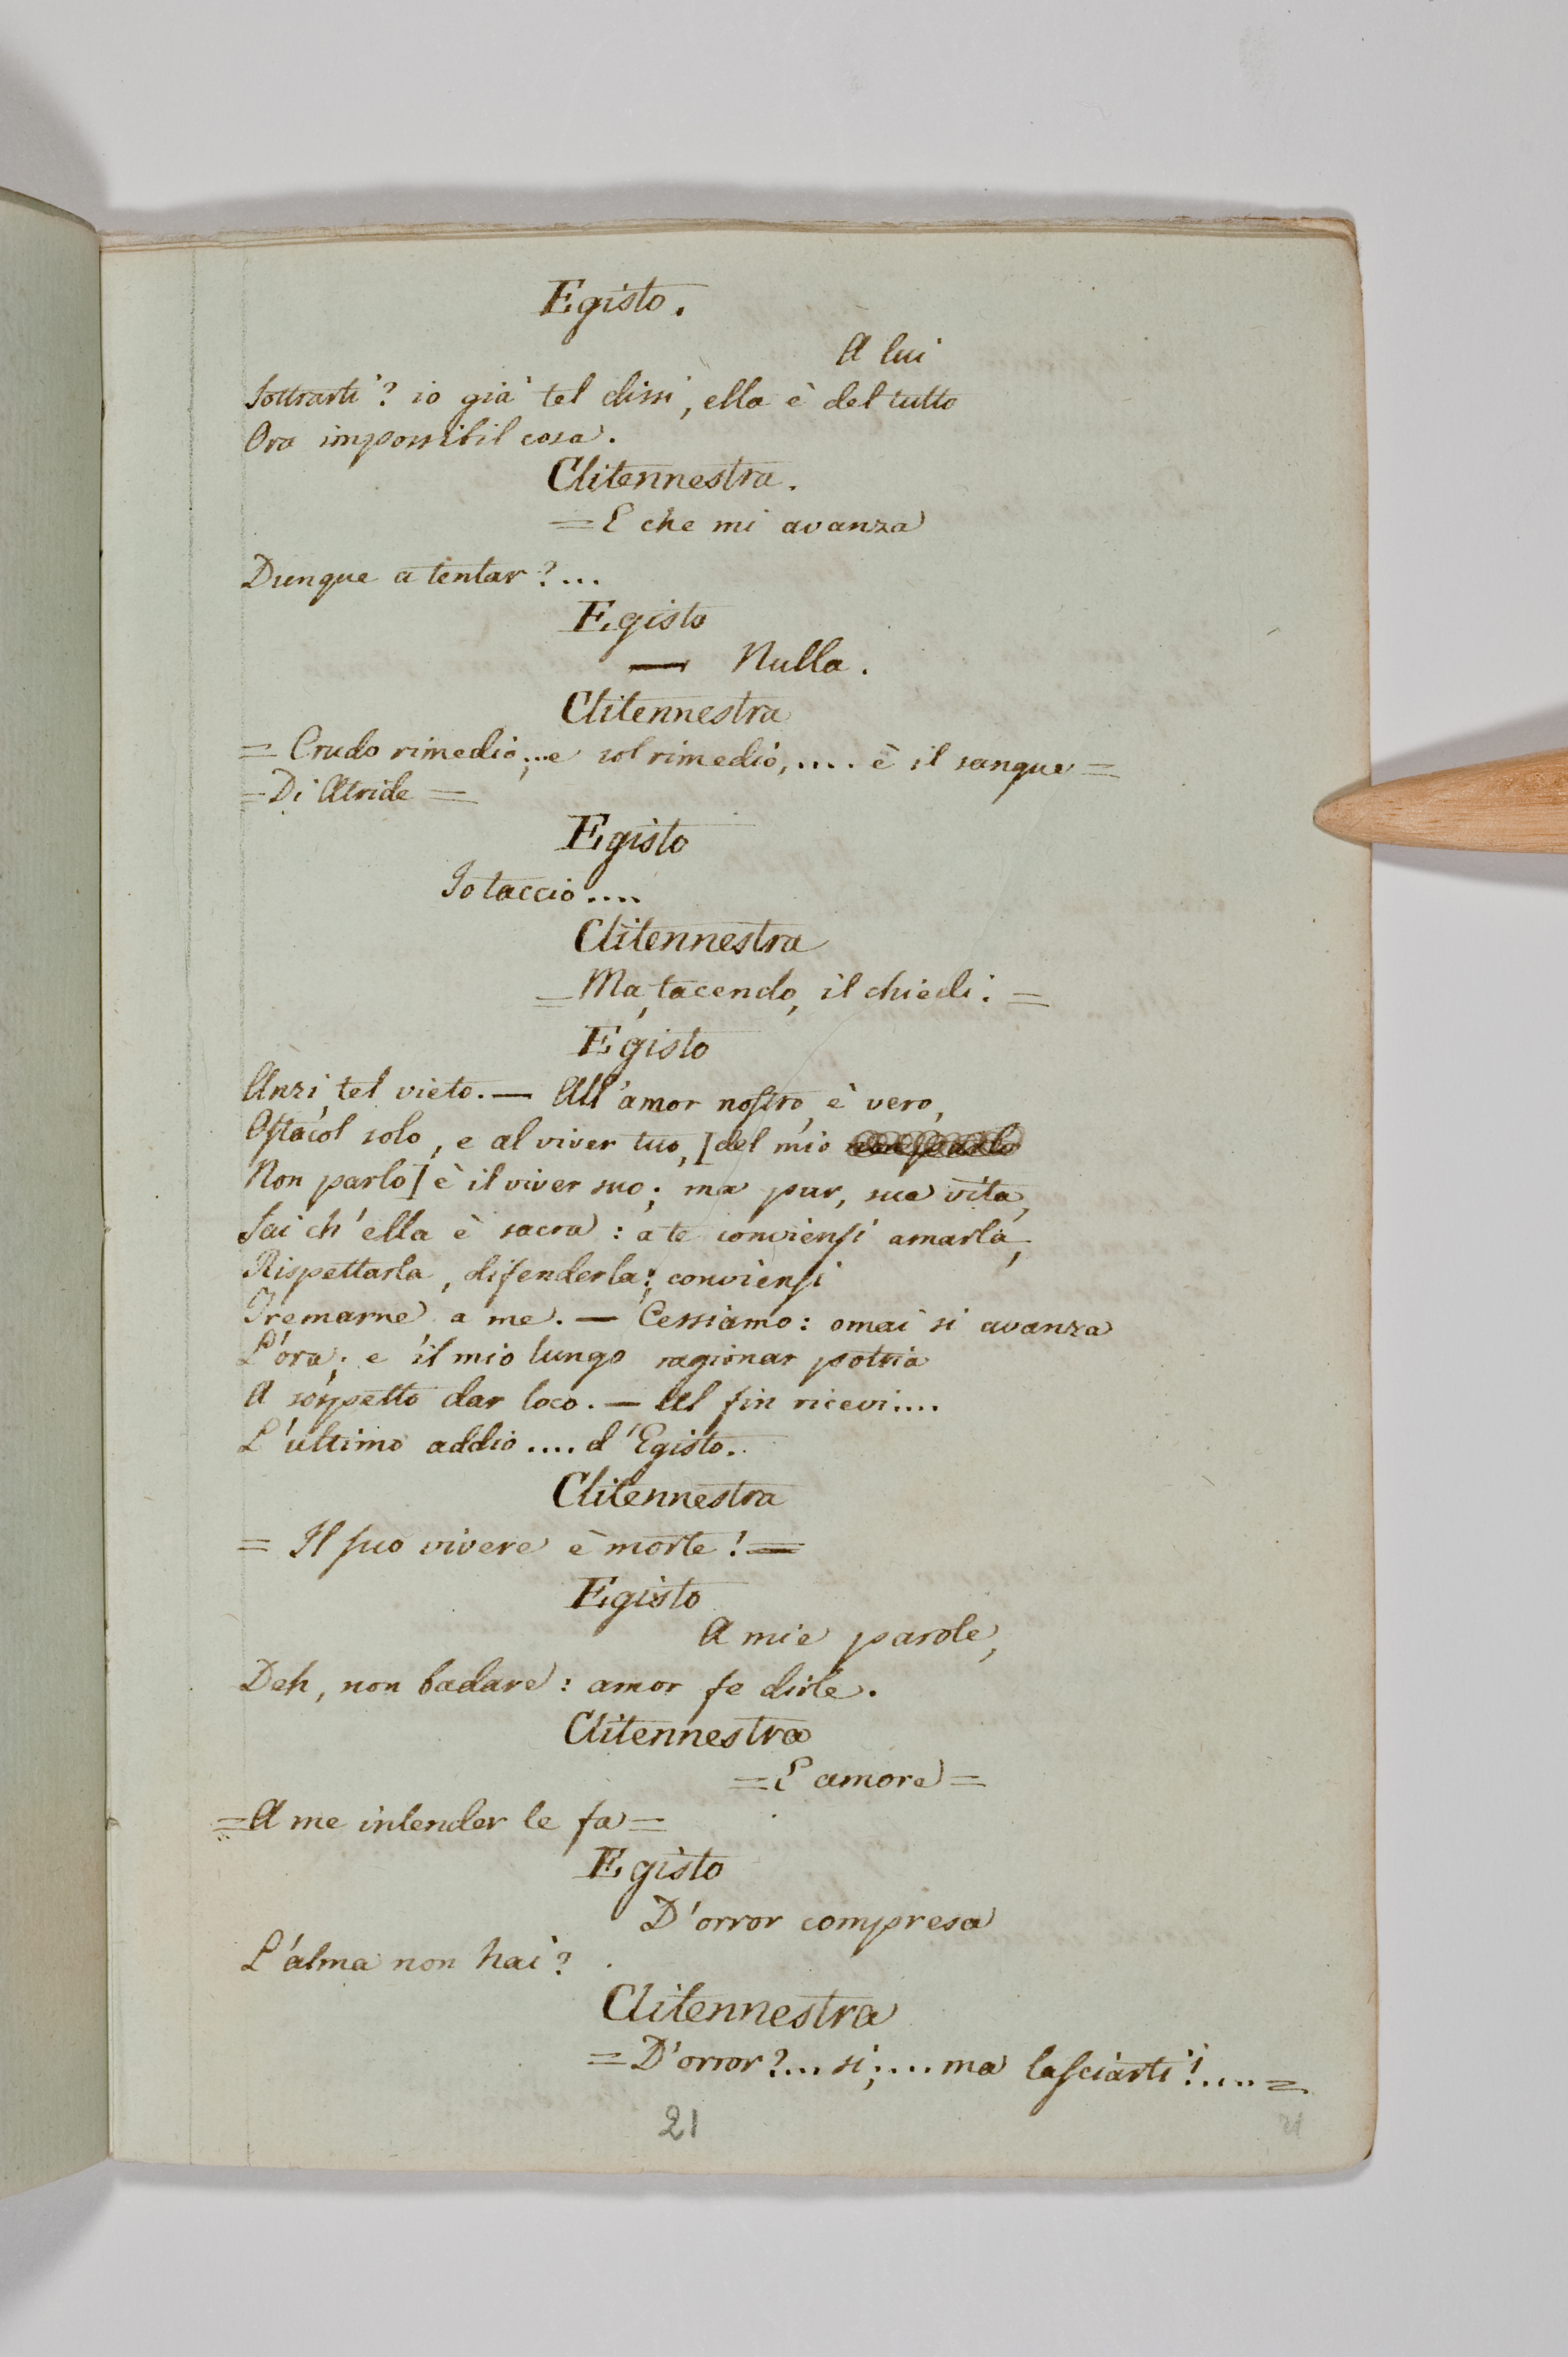 Egisto.
A lui
Sottrarti? io già tel dissi, ella è del tutto
Ora impossibil cosa.
Clitennestra.
= E che mi avanza
Dunque a tentar?...
Egisto
— Nulla.
Clitennestra
= Crudo rimedio;...e sol rimedio,.... è il sangue =
= Di Atride =
Egisto
Io taccio....
Clitennestra
= Ma, tacendo, il chiedi. =
Egisto
Anzi, tel vieto. — All'amor nostro, è vero,
Ostacol solo, e al viver tuo, [del mio non parlo
Non parlo] è il viver suo; ma pur, sua vita,
Sai ch'ella è sacra: a te conviensi amarla,
Rispettarla, difenderla; conviensi
Tremarne a me. — Cessiamo: omai si avanza
L'ora; e il mio lungo ragionar potria
A sospetto dar loco. — Al fin ricevi....
L'ultimo addio.... d'Egisto.
Clitennestra
= Il suo vivere è morte! =
Egisto
A mie parole,
Deh, non badare: amor fe dirle.
Clitennestra
= E amore =
= A me intender le fa =
Egisto
D'orror compresa
L'alma non hai?
Clitennestra
= D'orror?... sì;.... ma lasciarti!.... =
21
21